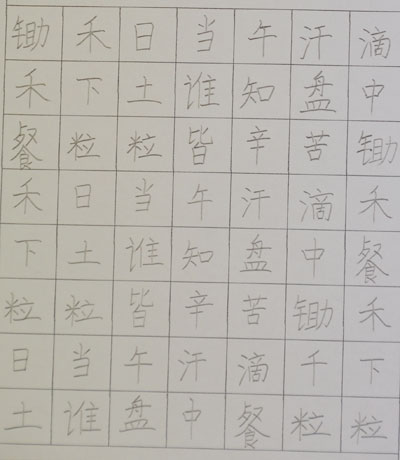 锄禾日当午汗滴
禾下土谁知盘中
餐粒粒皆辛苦锄
禾日当午汗滴禾
下土谁知盘中餐
粒粒皆辛苦锄禾
日当午汗滴千下
土谁盘中餐粒粒